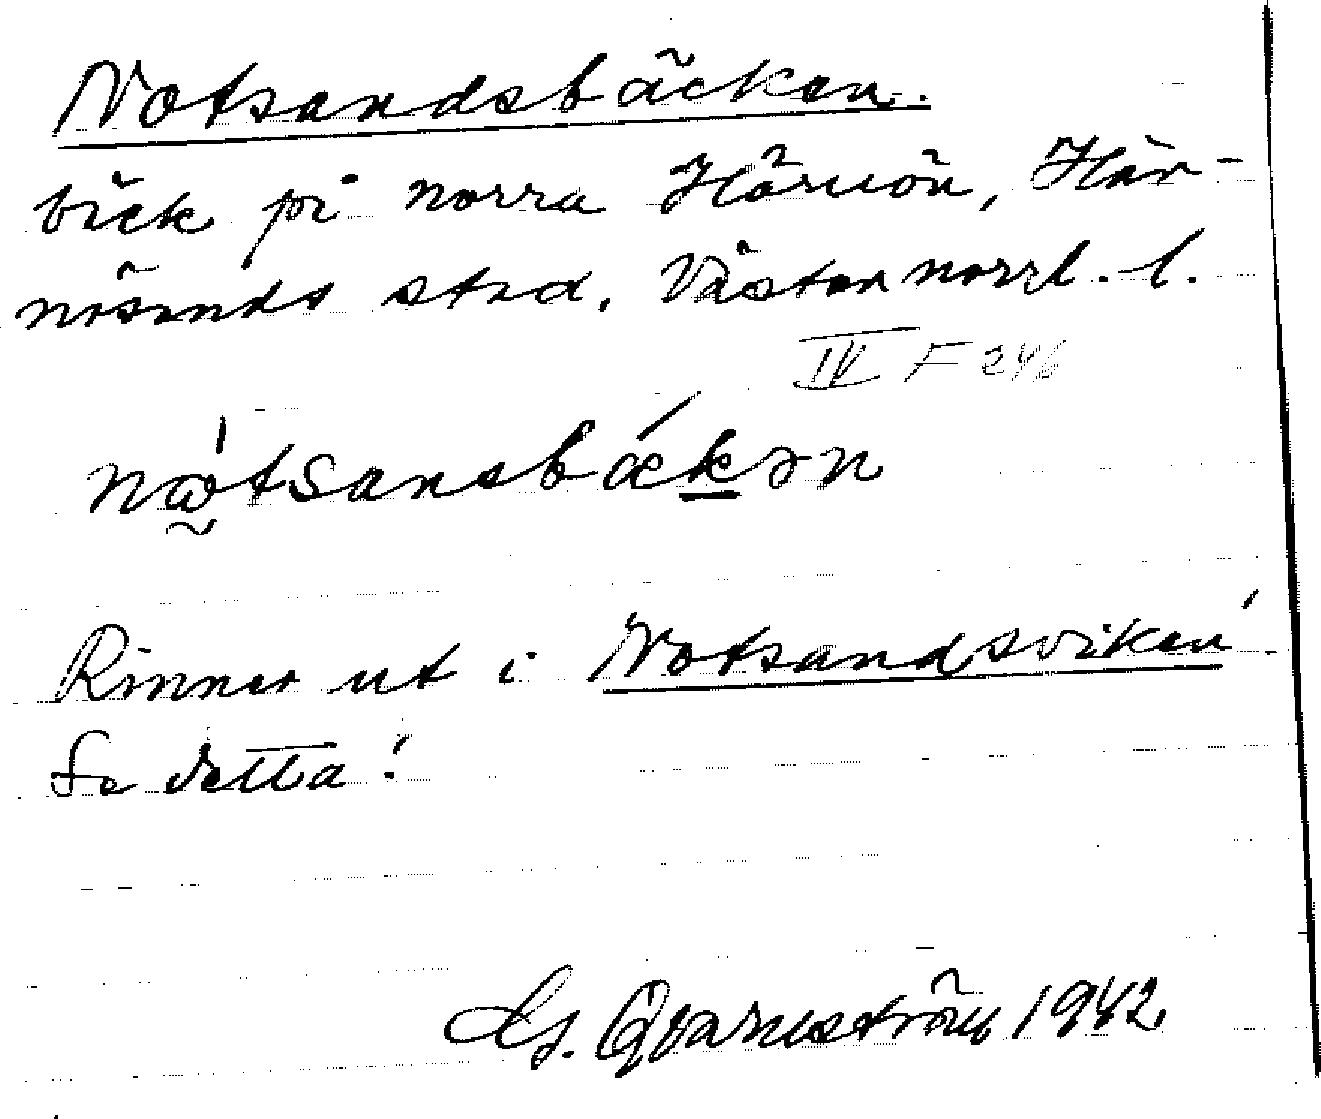 Notsandsbäcken.
bäck på norra Härnön, Här-
nösands stad, Västernorrl. l.
IV F 246
nὼ̰tsansbǽkən
Rinner ut i Notsandsviken
Se detta!
G. Qvarnström 1942